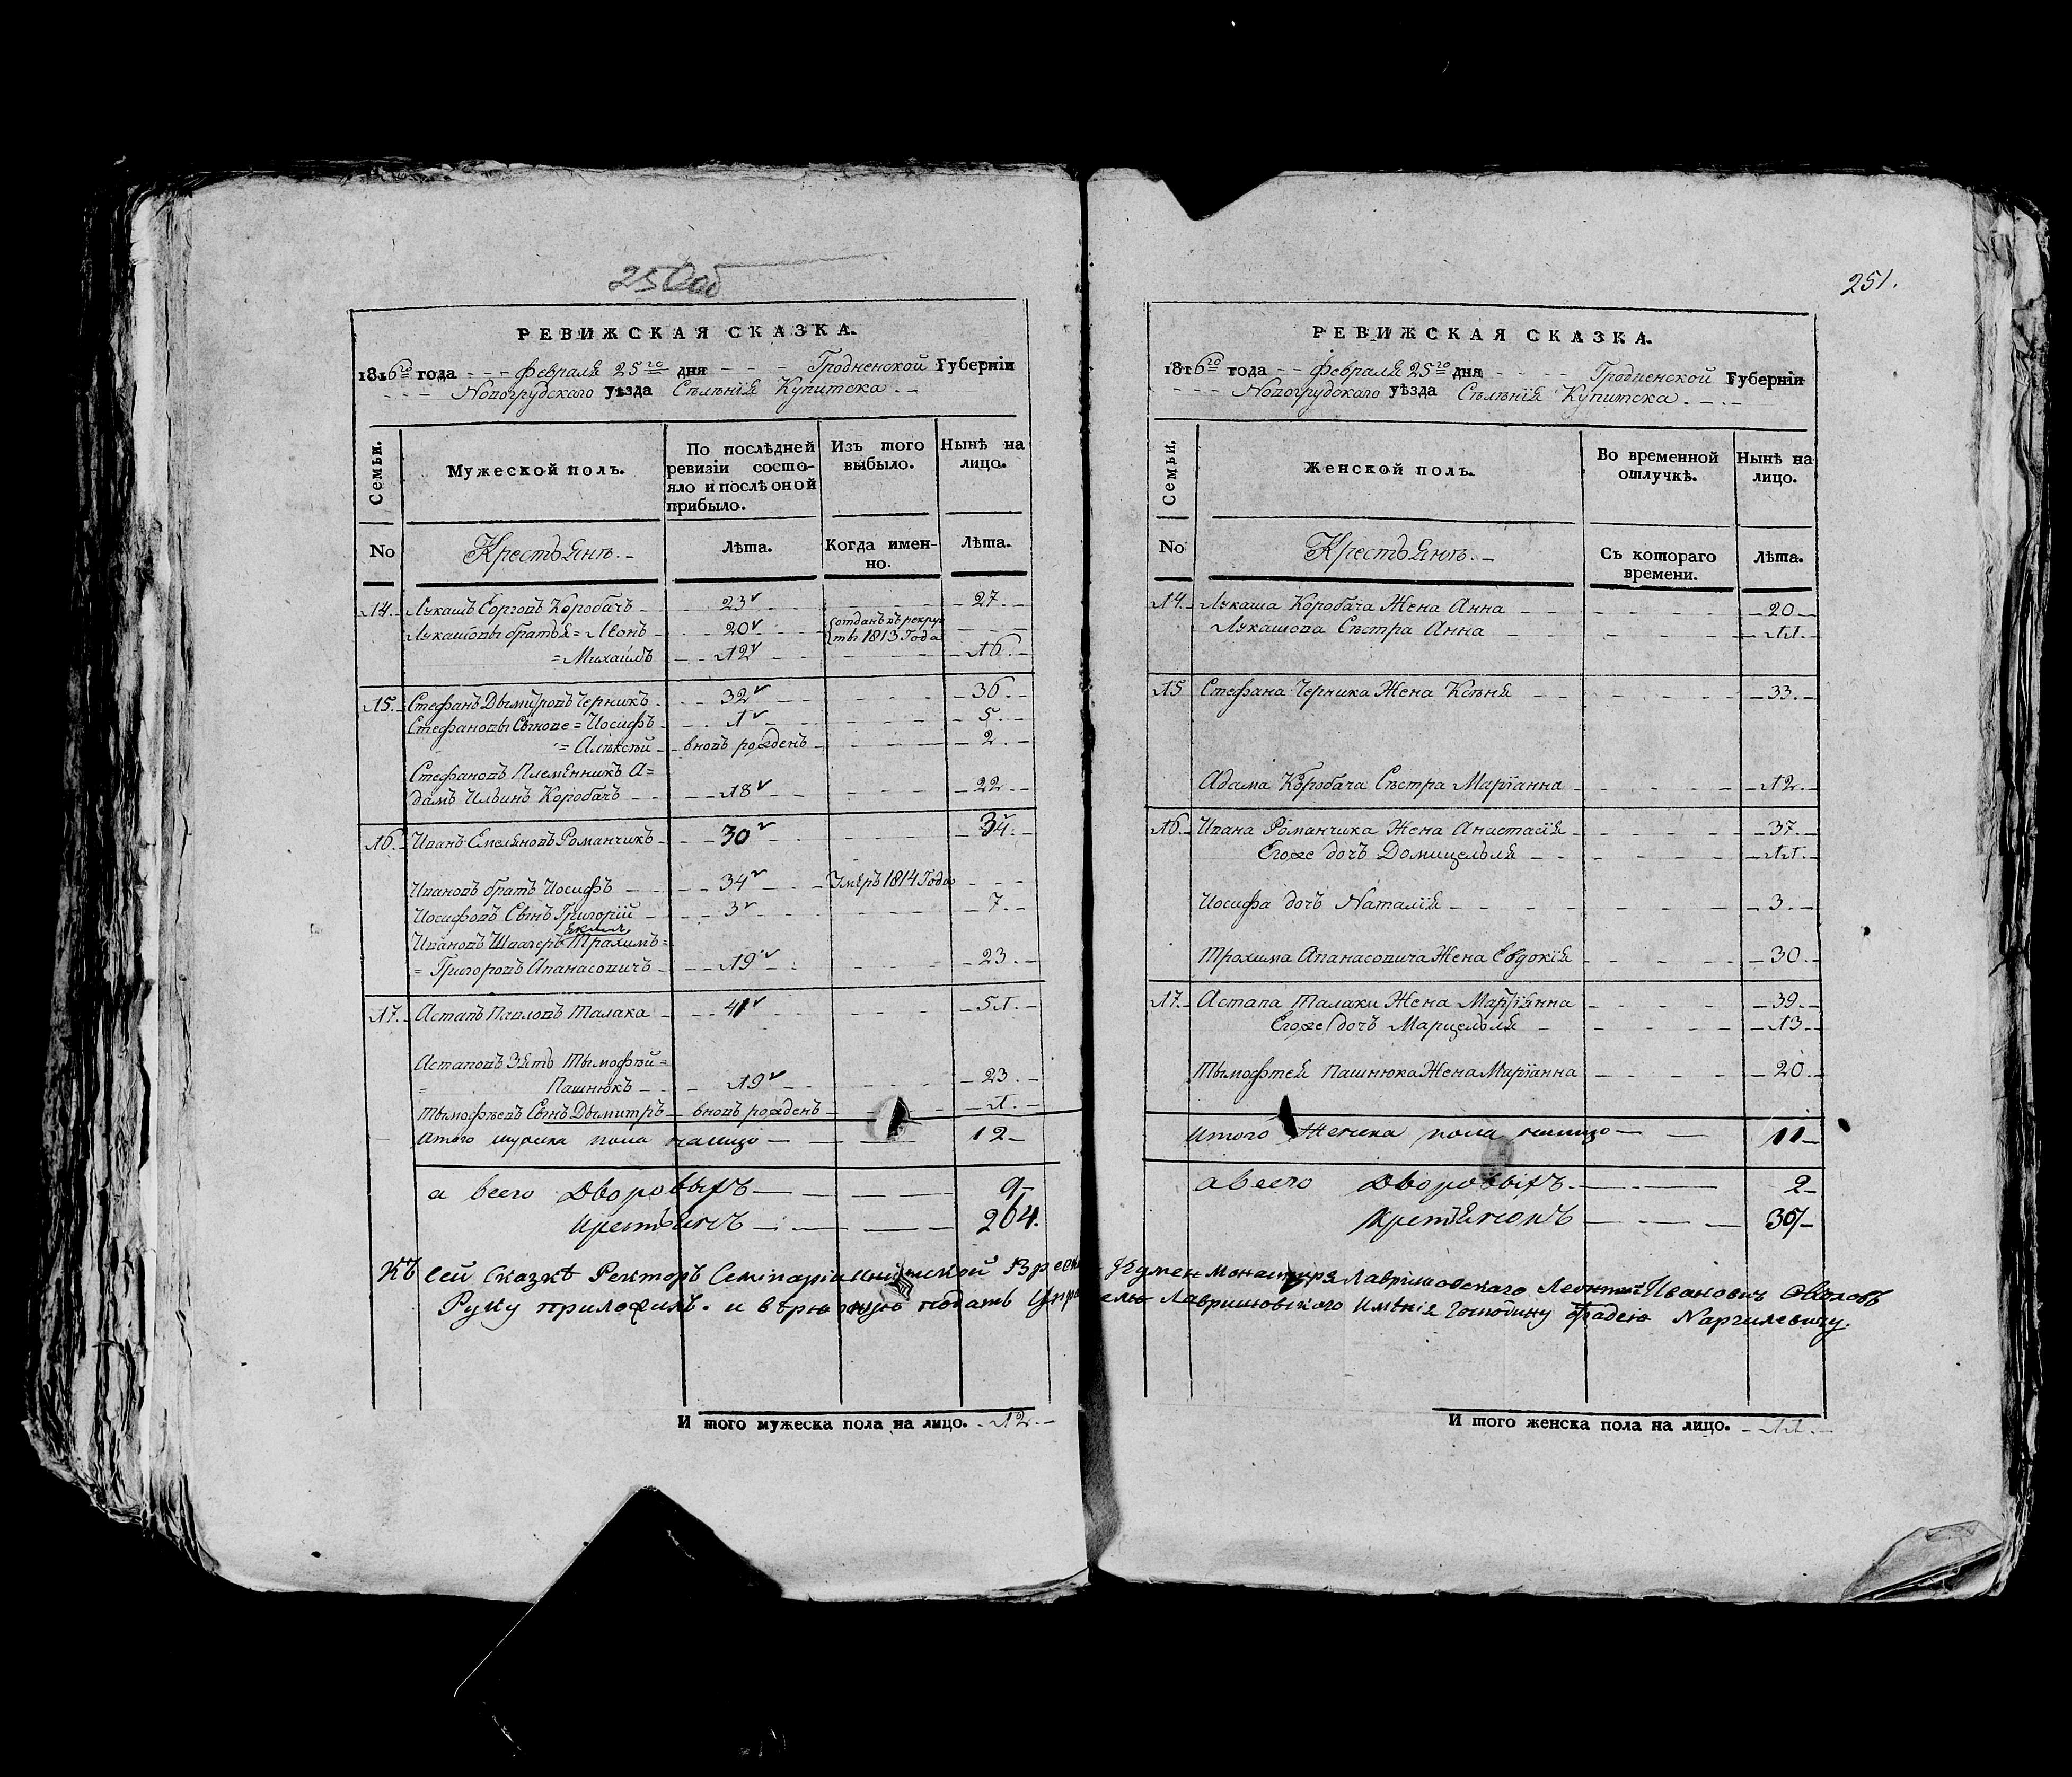 250об
РЕВИЖСКАЯ СКАЗКА.
1816го года - - - февраля 25го дня - - - Гродненской Губерніи
- - - Новогрудскаго уѣзда Сѣлѣнія Купитска. -
Семьи.
Мужеской полъ.
По послѣдней ревизіи состо-
яло и послѣ оной
прибыло.
Изъ того
выбыло.
Нынѣ на
лицо.
No
Крестьянъ. -
Лѣта.
Когда имен-
но.
Лѣта.
14. Лукашъ Сорговъ Коробачъ - 23 - 27. -
Лукашовы братья = Леонъ - 20 - {отданъ въ рекру-
{ты 1813 Года
= Михаилъ - 12 - 16. -
15. Стефанъ Дымитровъ Черникъ - 32 - 36. -
Стефановы Сынове = Іосифъ - 1 - 5. -
= Алѣксѣй - вновь рожденъ - 2. -
Стефановъ Племянникъ А=
дамъ Ильинъ Коробачъ - 18 - 22. -
16. Иванъ Емеляновъ Романчикъ - 30 - 34. -
Ивановъ братъ Іосифъ - 34 - Умѣръ 1814 Года
Іосифовъ Сынъ Григорій - 3 - 7. -
Ивановъ Швагеръ Трахимъ=
= Григоровъ Апанасовичъ - 19 - 23. -
17. Астапъ Павловъ Талака - 41 - 51. -
Астаповъ Зять Тымофѣй=
= Пашнюкъ - 19 - 23. -
Тымофѣевъ Сынъ Дымитръ - вновь рожденъ - 1. -
Итого мужска пола налицо - 12 -
а всего Дворовыхъ - 9 -
крестьянъ - 264.
И того мужеска пола на лицо. - 12. -
251.
РЕВИЖСКАЯ СКАЗКА.
1816го года - - февраля 25го дня - - - - Гродненской Губерніи
- - - Новогрудскаго уѣзда Сѣлѣнія Купитска. - . -
Семьи.
Женской полъ.
Во временной
отлучкѣ.
Нынѣ на
лицо.
No
Крестьянъ. -
Съ котораго
времени.
Лѣта.
14. Лукаша Коробача Жена Анна - 20 -
Лукашова Сѣстра Анна - 11. -
15 Стефана Черника Жена Ксѣня - 33. -
Адама Коробача Сѣстра Маріанна - 12. -
16. Ивана Романчика Жена Анастасія - 37. -
Егоже дочъ Домицелья - 11. -
Іосифа дочъ Наталія - 3. -
Трохима Апанасовича Жена Евдокія - 30. -
17. Астапа Талаки Жена Маріянна - 39. -
Егоже дочъ Марцелья - 13. -
Тымофтея Пашнюка Жена Маріанна - 20. -
Итого Женска пола налицо - 11 -
а всего Дворовыхъ. - 2 -
И того женска пола на лицо. - 11. -
Къ сей Сказкѣ Ректоръ Семінаріи Игумен Монастиря Лаврішовскаго Леонтій Иванович
Руку приложилъ. и вѣрю оную подать Лавришовского Имѣнія Господину Фадею Наргилевичу.